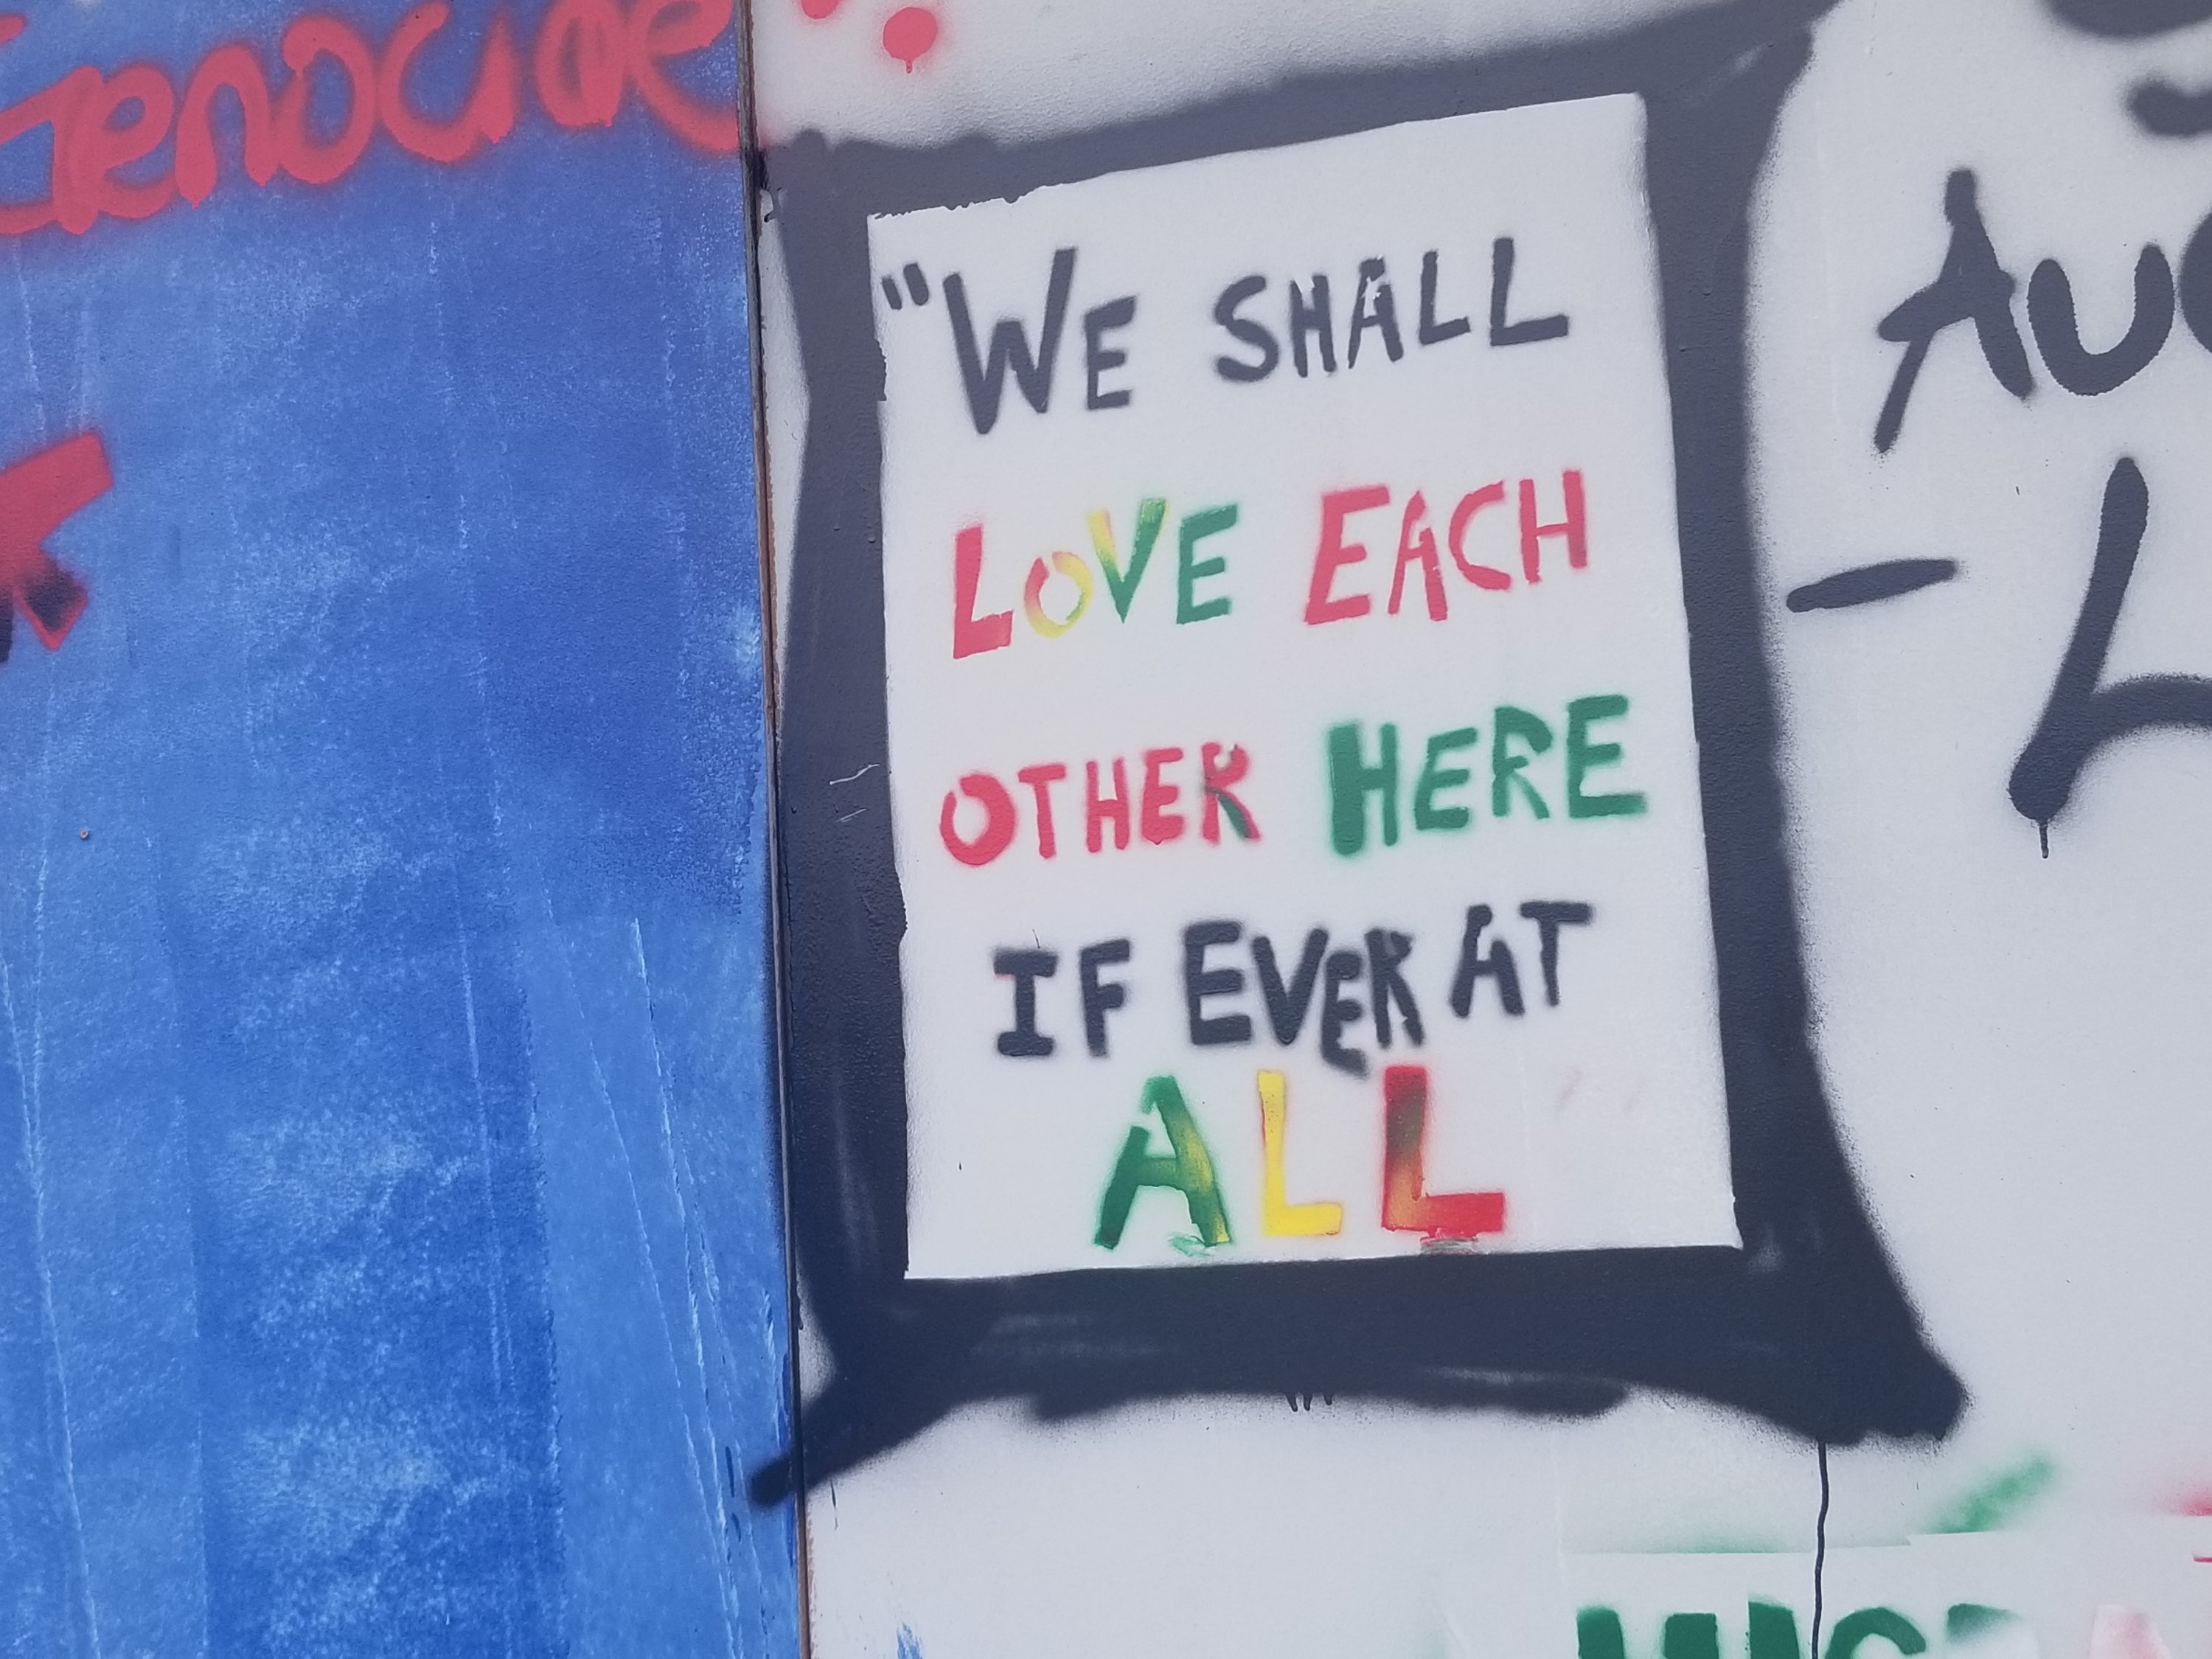 GENOCIDE
"WE SHALL
LOVE EACH
OTHER HERE
IF EVER AT
ALL